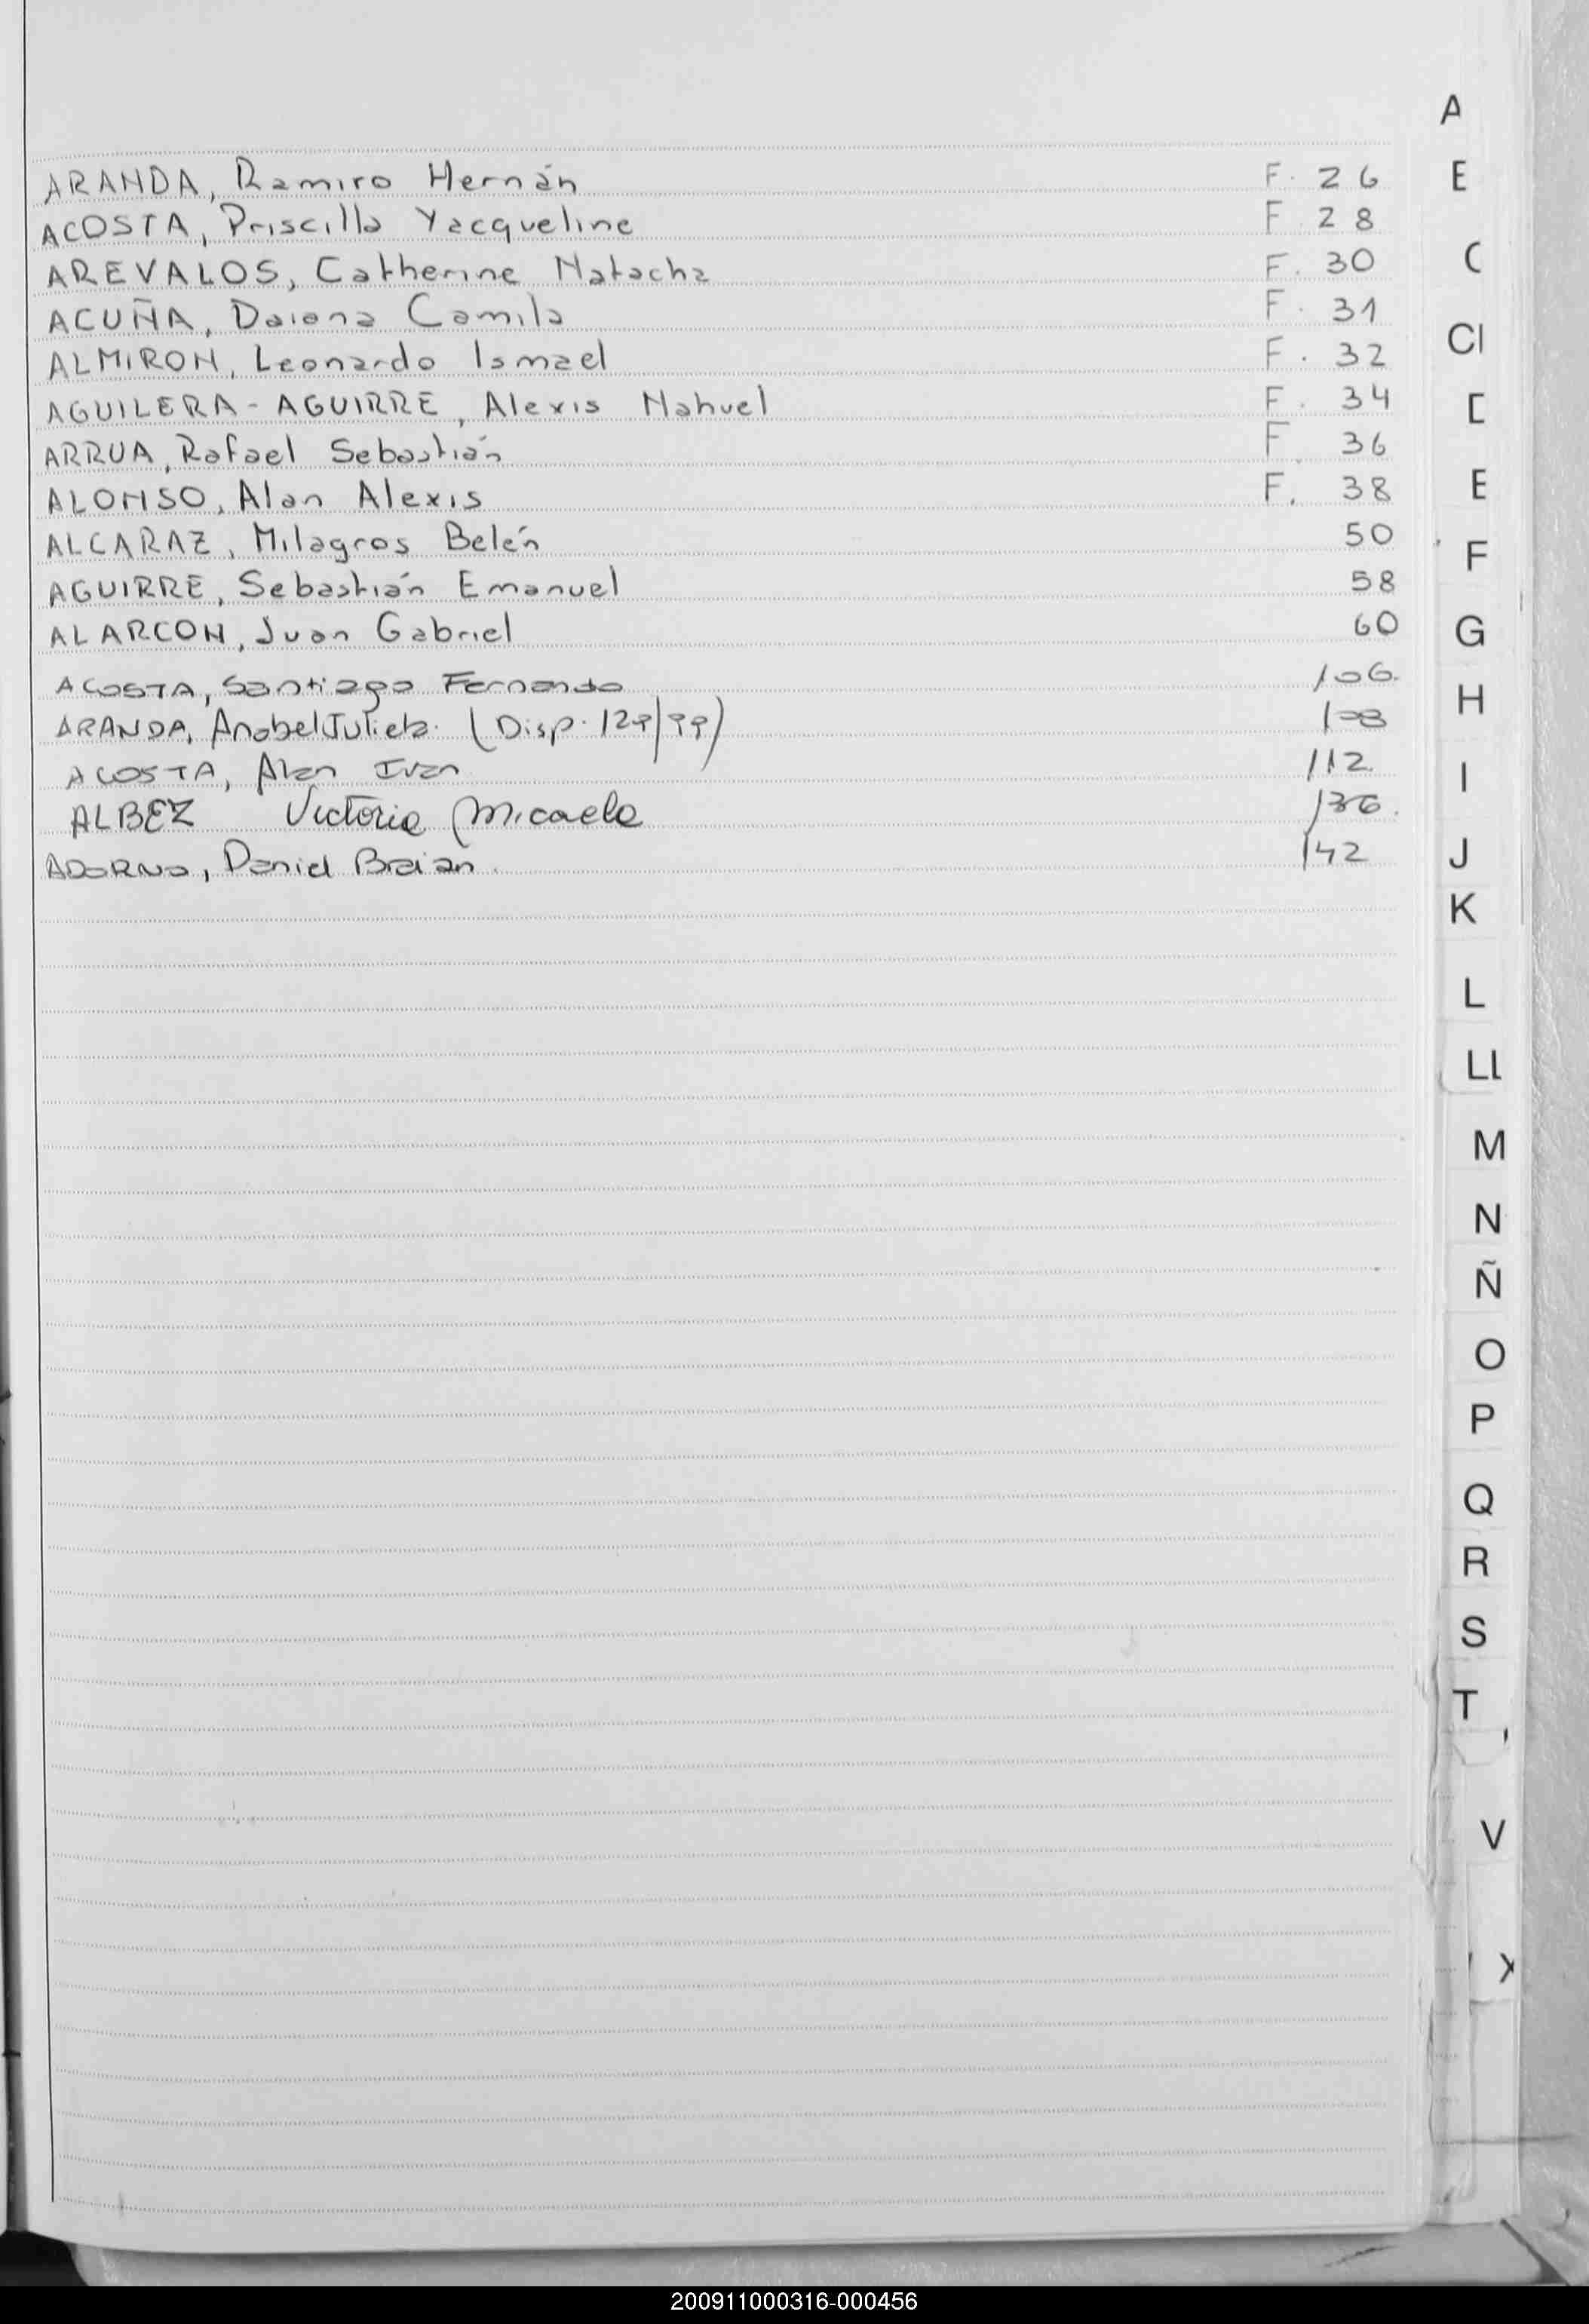 ARANDA, Ramiro Hernán F. 26
ACOSTA, Priscilla Yacqueline F. 28
AREVALOS, Catherine Natacha F. 30
ACUÑA, Daiana Camila F. 31
ALMIRON, Leonardo Ismael F. 32
AGUILERA - AGUIRRE, Alexis Nahuel F. 34
ARRUA, Rafael Sebastián F. 36
ALONSO, Alan Alexis F. 38
ALCARAZ, Milagros Belén 50
AGUIRRE, Sebastián Emanuel 58
ALARCON, Juan Gabriel 60
ACOSTA, Santiago Fernando 106.
ARANDA, Anabel Julieta. (Disp. 129/99) 108
ACOSTA, Alan Ivan 112.
ALBEZ Victoria Micaela 136.
ADORNO, Daniel Braian. 142
A
E
C
Cl
E
F
G
H
I
J
K
L
Ll
M
N
Ñ
O
P
Q
R
S
T
V
X
200911000316-000456